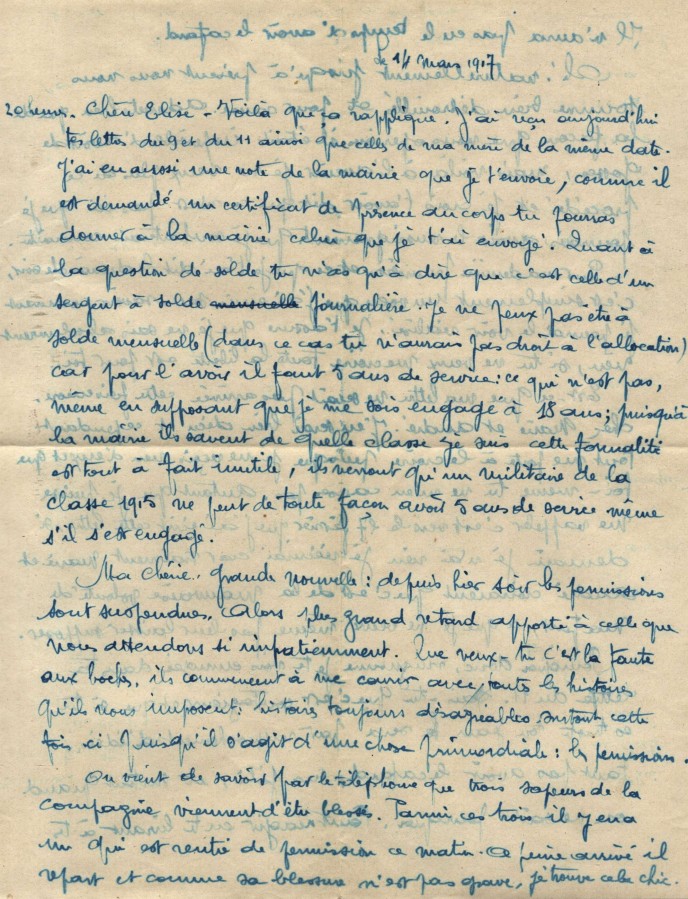 le 14 mars 1917
20 heures. Chère Elise - Voilà que ça rapplique. J'ai reçu aujourd'hui
tes lettres du 9 et du 11 ainsi que celles de ma mère de la même date.
J'ai eu aussi une note de la mairie que je t'envoie, comme il
est demandé un certificat de présence au corps tu pourras
donner à la mairie celui que je t'ai envoyé. Quant à
la question de solde tu n'as qu'à dire que c'est celle d'un
sergent à solde mensuelle journalière. Je ne peux pas être à
solde mensuelle (dans ce cas tu n'aurais pas droit à l'allocation)
car pour l'avoir il faut 5 ans de service : ce qui n'est pas,
même en supposant que je me sois engagé à 18 ans ; puisqu'à
la mairie ils savent de quelle classe je suis cette formalité
est tout à fait inutile, ils verront qu'un militaire de la
classe 1915 ne peut de toute façon avoir 5 ans de service même
s'il s'est engagé.
Ma Chérie, grande nouvelle : depuis hier soir les permissions
sont suspendues. Alors plus grand retard apporté à celle que
nous attendons si impatiemment. Que veux-tu c'est la faute
aux boches, ils commencent à me courir avec toutes les histoires
qu'ils nous imposent : histoires toujours désagréables surtout cette
fois ci puisqu'il s'agit d'une chose primordiale : les permissions.
On vient de savoir par le téléphone que trois sapeurs de la
compagnie viennent d'être blessés. Parmi ces trois il y en a
un qui est rentré de permission ce matin. A peine arrivé il
repart et comme sa blessure n'est pas grave, je trouve cela chic.